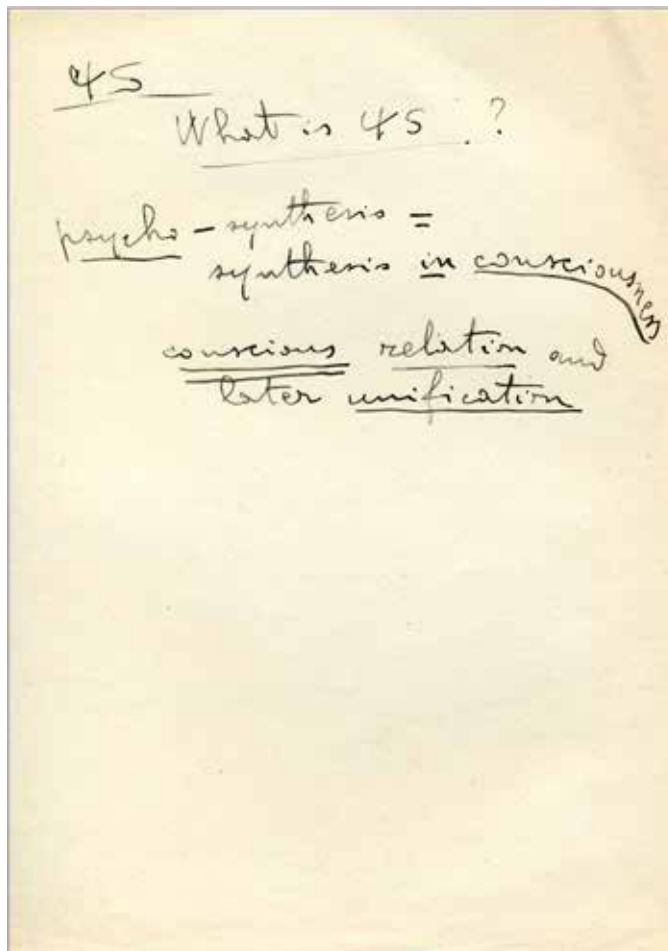 ψS
What is ψS ?
psycho - synthesis =
synthesis in consciousness
conscious relation and
later unification